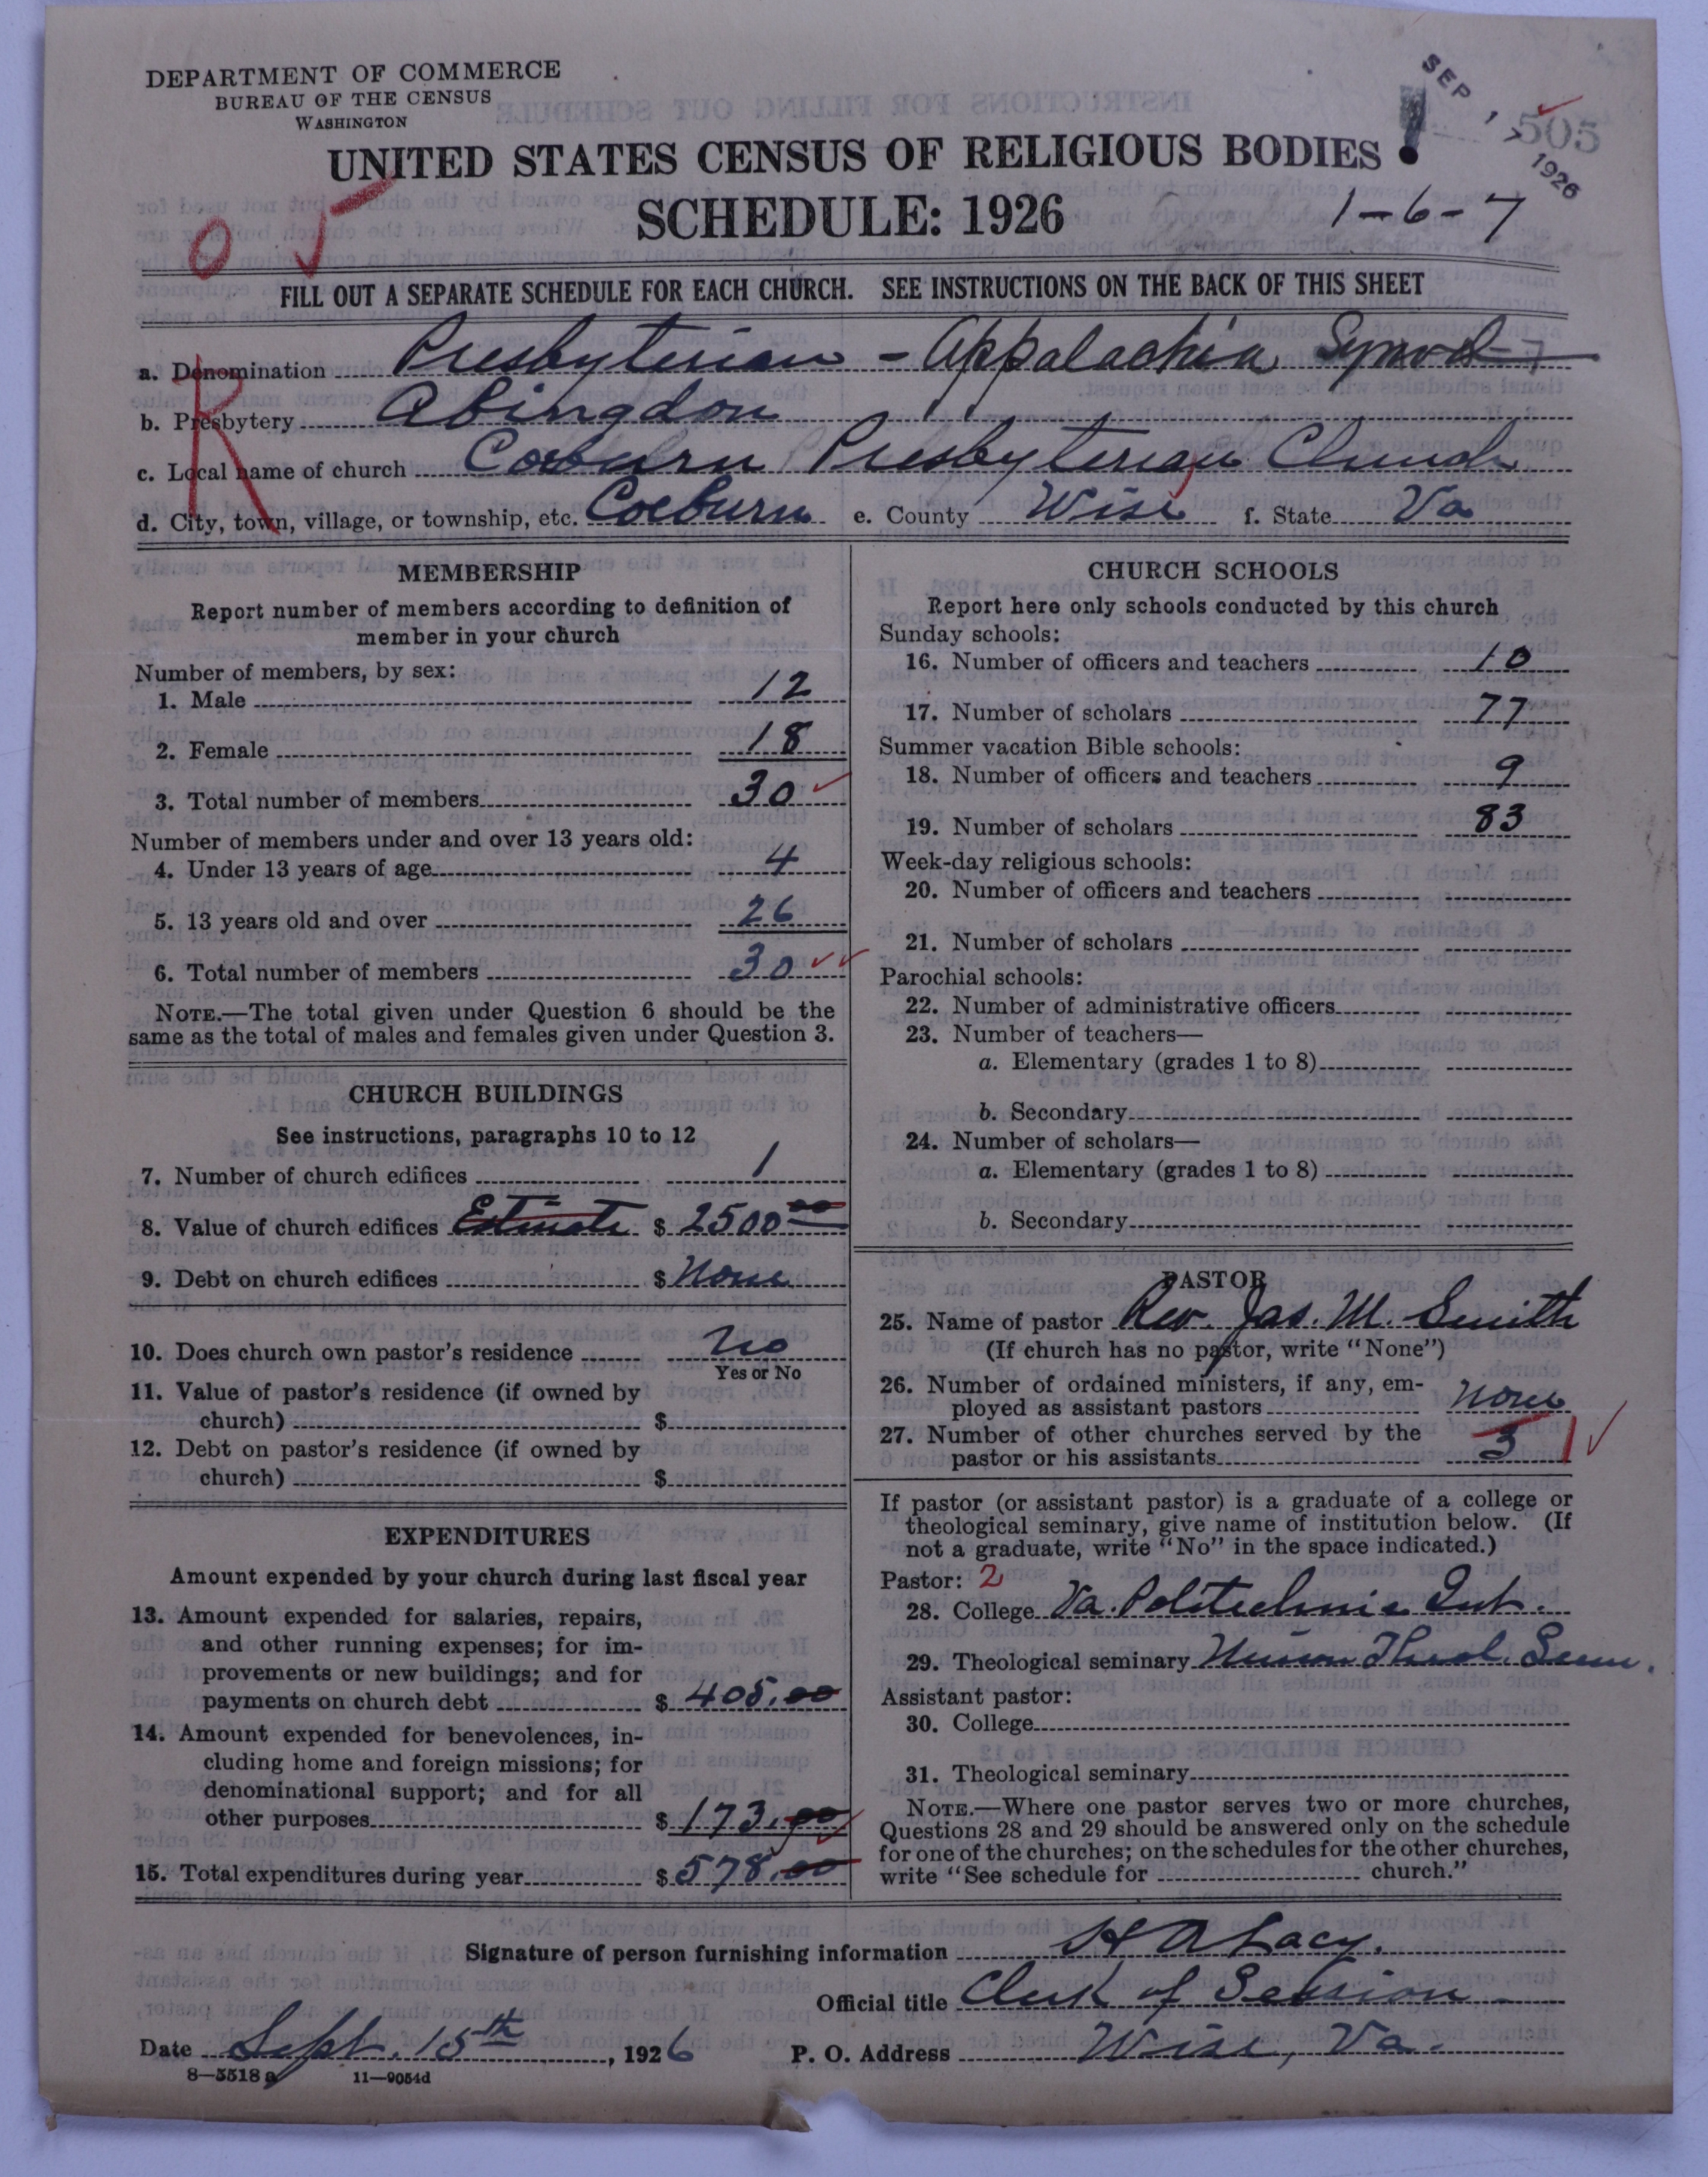 DEPARTMENT OF COMMERCE
BUREAU OF THE CENSUS
WASHINGTON
SEP 17 1926
505
UNITED STATES CENSUS OF RELIGIOUS BODIES
SCHEDULE: 1926
1-6-7
FILL OUT A SEPARATE SCHEDULE FOR EACH CHURCH. SEE INSTRUCTIONS ON THE BACK OF THIS SHEET
a. Denomination Presbyterian - Appalachia Synod 7
b. Presbytery Abingdon
c. Local name of church Coeburn Presbyterian Church
d. City, town, village, or township, etc. Coeburn e. County Wise f. State Va
R
MEMBERSHIP
Report number of members according to definition of
member in your church
Number of members, by sex:
1. Male 12
2. Female 18
3. Total number of members 30
Number of members under and over 13 years old:
4. Under 13 years of age 4
5. 13 years old and over 26
6. Total number of members 30
NOTE.—The total given under Question 6 should be the
same as the total of males and females given under Question 3.
CHURCH BUILDINGS
See instructions, paragraphs 10 to 12
7. Number of church edifices 1
8. Value of church edifices Estimate $ 2500 00
9. Debt on church edifices $ None
10. Does church own pastor's residence No
Yes or No
11. Value of pastor's residence (if owned by
church) $
12. Debt on pastor's residence (if owned by
church) $
EXPENDITURES
Amount expended by your church during last fiscal year
13. Amount expended for salaries, repairs,
and other running expenses; for im-
provements or new buildings; and for
payments on church debt $ 405.00
14. Amount expended for benevolences, in-
cluding home and foreign missions; for
denominational support; and for all
other purposes $ 173.00
15. Total expenditures during year $ 578.00
CHURCH SCHOOLS
Report here only schools conducted by this church
Sunday schools:
16. Number of officers and teachers 10
17. Number of scholars 77
Summer vacation Bible schools:
18. Number of officers and teachers 9
19. Number of scholars 83
Week-day religious schools:
20. Number of officers and teachers
21. Number of scholars
Parochial schools:
22. Number of administrative officers
23. Number of teachers—
a. Elementary (grades 1 to 8)
b. Secondary
24. Number of scholars—
a. Elementary (grades 1 to 8)
b. Secondary
PASTOR
25. Name of pastor Rev. Jas. M. Smith
(If church has no pastor, write "None")
26. Number of ordained ministers, if any, em-
ployed as assistant pastors None
27. Number of other churches served by the
pastor or his assistants 3 1
If pastor (or assistant pastor) is a graduate of a college or
theological seminary, give name of institution below. (If
not a graduate, write "No" in the space indicated.)
Pastor: 2
28. College Va. Politechnic Inst.
29. Theological seminary Union Theol. Sem.
Assistant pastor:
30. College
31. Theological seminary
NOTE.—Where one pastor serves two or more churches,
Questions 28 and 29 should be answered only on the schedule
for one of the churches; on the schedules for the other churches,
write "See schedule for church."
Signature of person furnishing information H A Lacy.
Official title Clerk of Session
Date Sept. 15th, 1926 P. O. Address Wise, Va.
8—5518 a 11—9054d